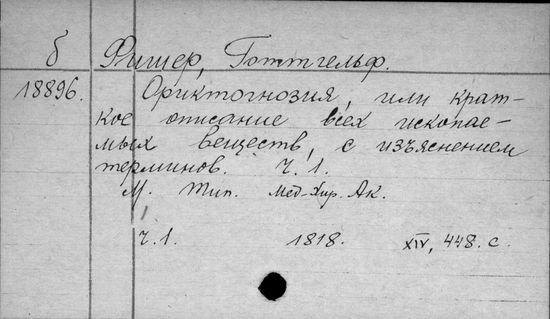 б Фишер, Готтгельф.
18896. Ориктогнозия, или крат-
кое описание всех ископае-
мых веществ, с изъяснением
терминов. Ч. 1.
М. Тип. Мед-Хир. Ак.
Ч. 1. 1818. XIV, 448. с.